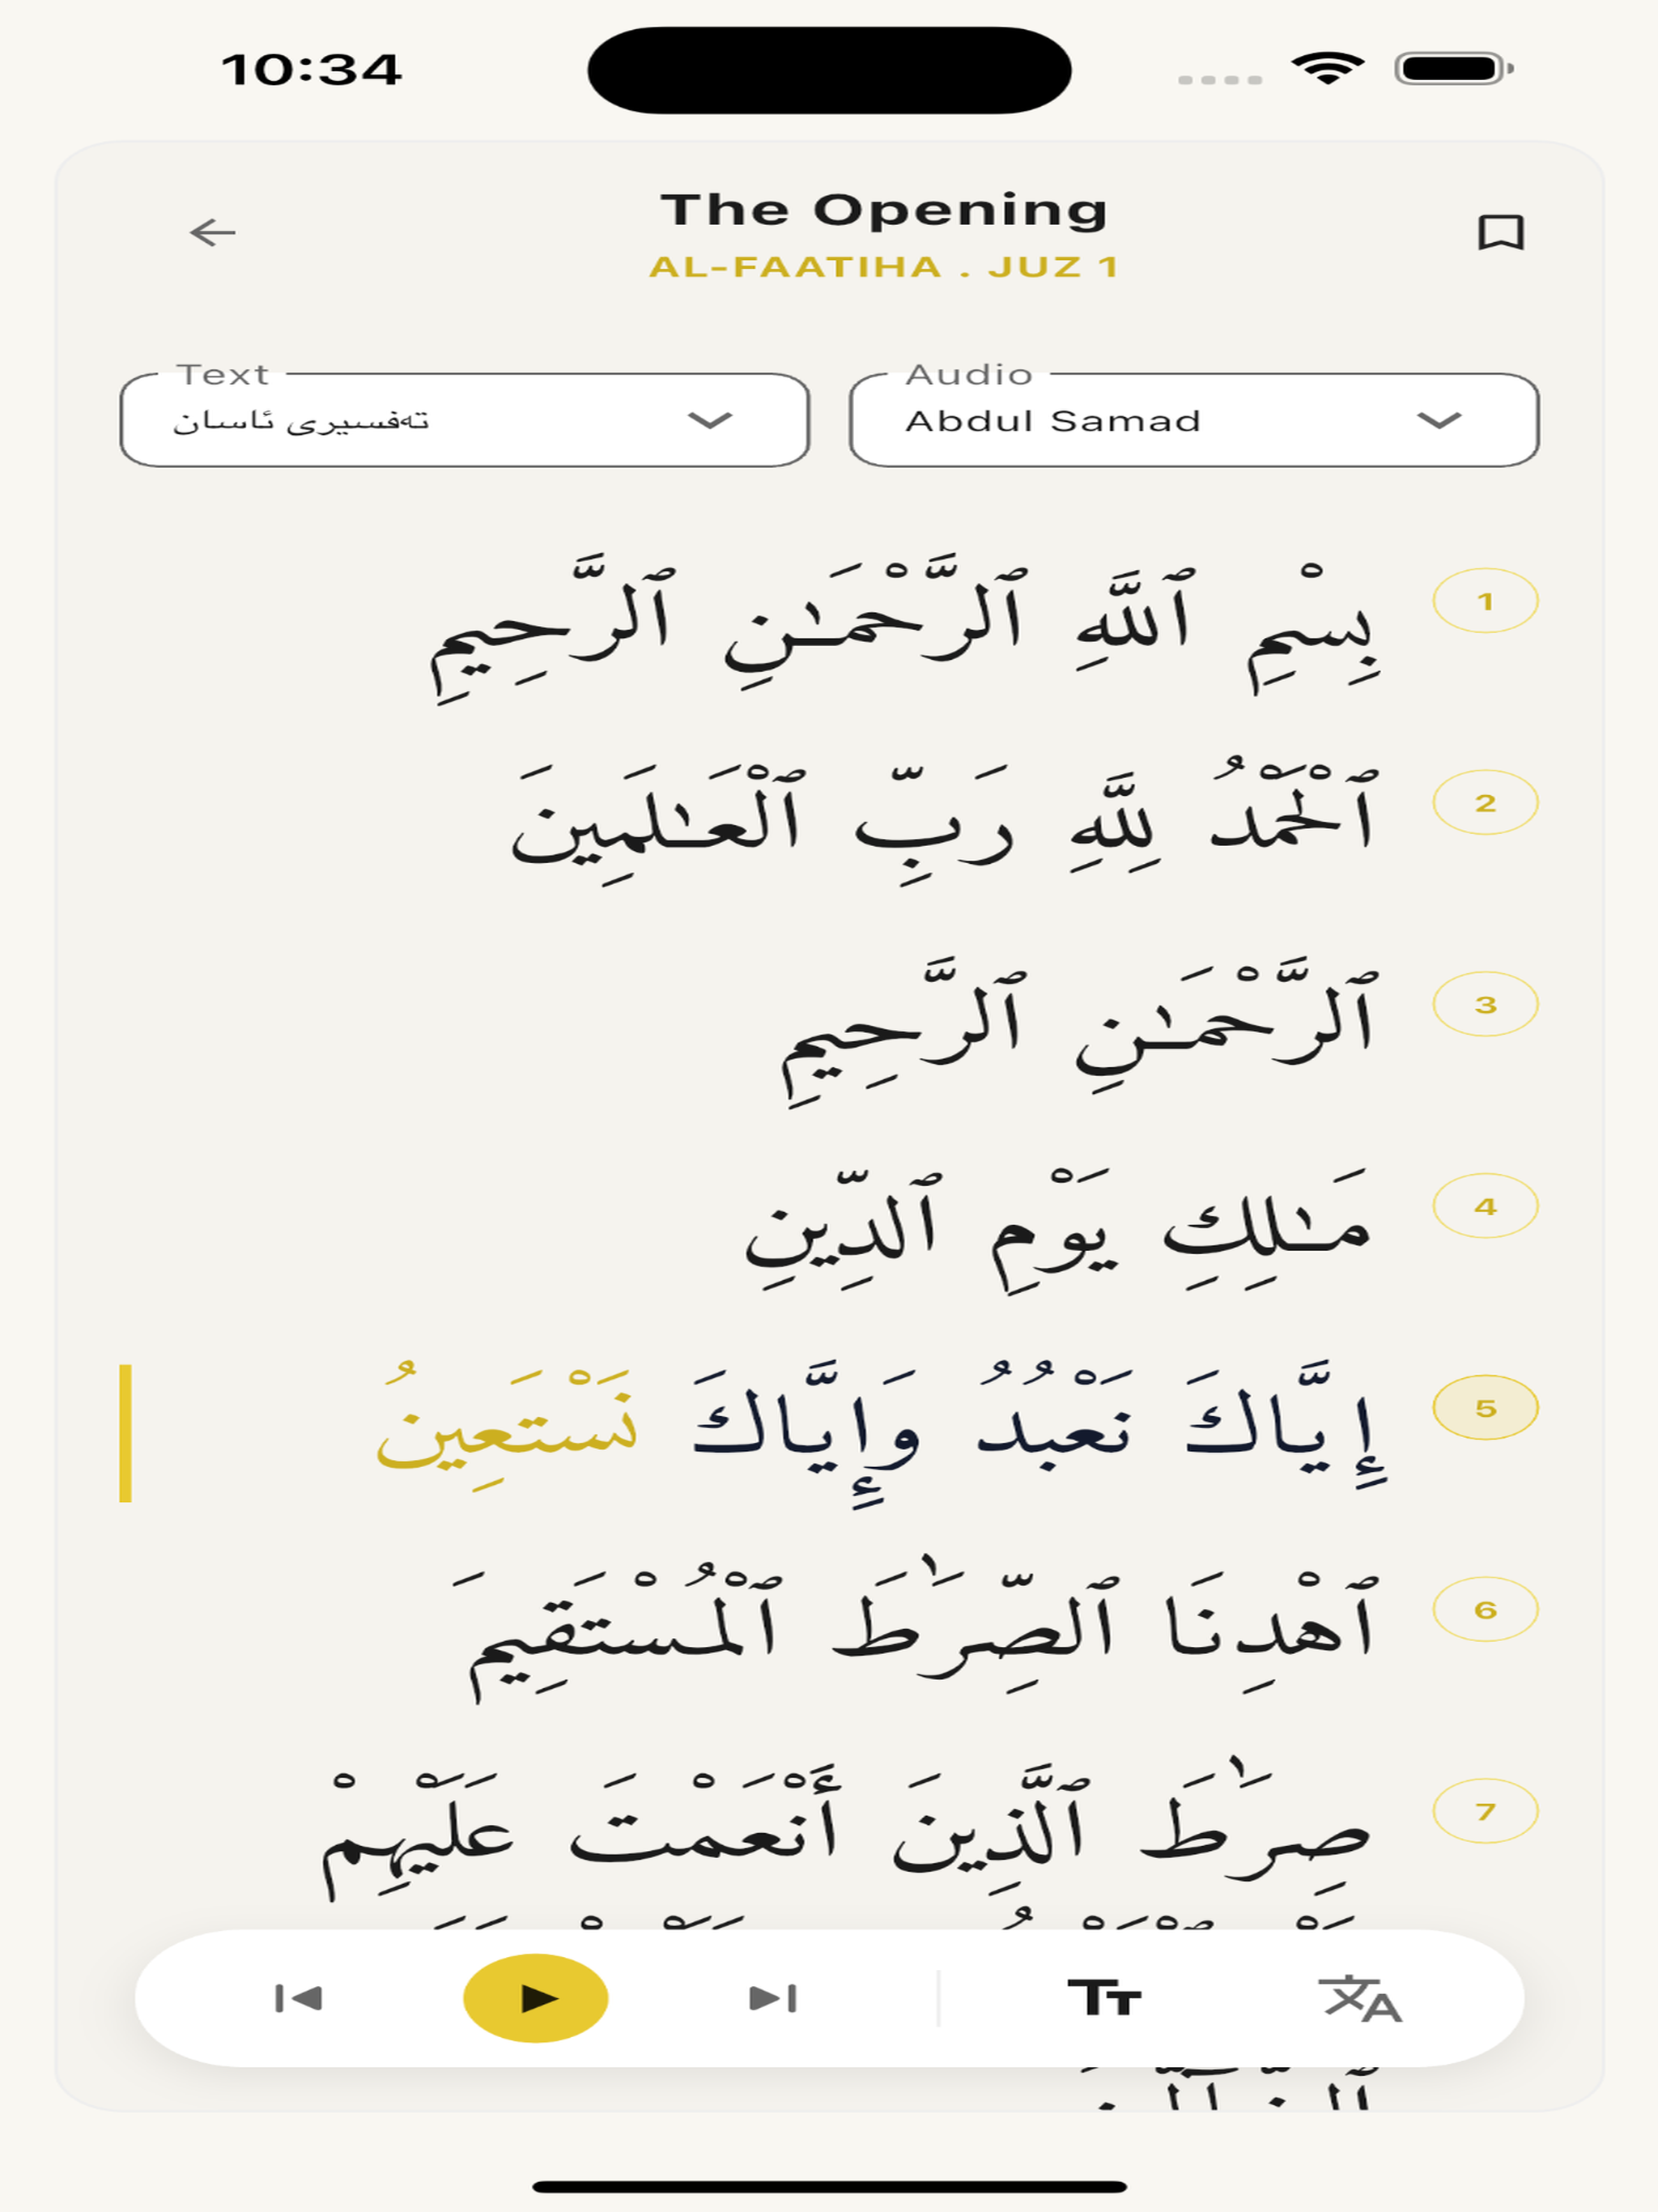 10:34
The Opening
AL-FAATIHA . JUZ 1
Text
تەفسیری ئاسان
Audio
Abdul Samad
1
بِسْمِ ٱللَّهِ ٱلرَّحْمَـٰنِ ٱلرَّحِيمِ
2
ٱلْحَمْدُ لِلَّهِ رَبِّ ٱلْعَـٰلَمِينَ
3
ٱلرَّحْمَـٰنِ ٱلرَّحِيمِ
4
مَـٰلِكِ يَوْمِ ٱلدِّينِ
5
إِيَّاكَ نَعْبُدُ وَإِيَّاكَ نَسْتَعِينُ
6
ٱهْدِنَا ٱلصِّرَٰطَ ٱلْمُسْتَقِيمَ
7
صِرَٰطَ ٱلَّذِينَ أَنْعَمْتَ عَلَيْهِمْ